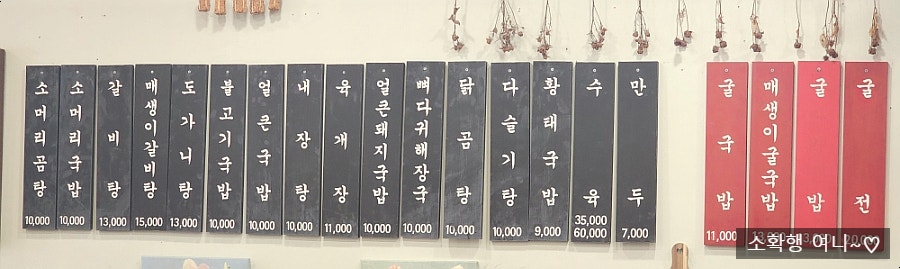 소머리곰탕
10,000
소머리국밥
10,000
갈비탕
13,000
매생이갈비탕
15,000
도가니탕
13,000
불고기국밥
10,000
얼큰국밥
10,000
내장탕
10,000
육개장
11,000
얼큰돼지국밥
10,000
뼈다귀해장국
10,000
닭곰탕
10,000
다슬기탕
10,000
황태국밥
9,000
수육
35,000
60,000
만두
7,000
굴국밥
11,000
매생이굴국밥
13,000
굴밥
굴전
소확행 여나~♡